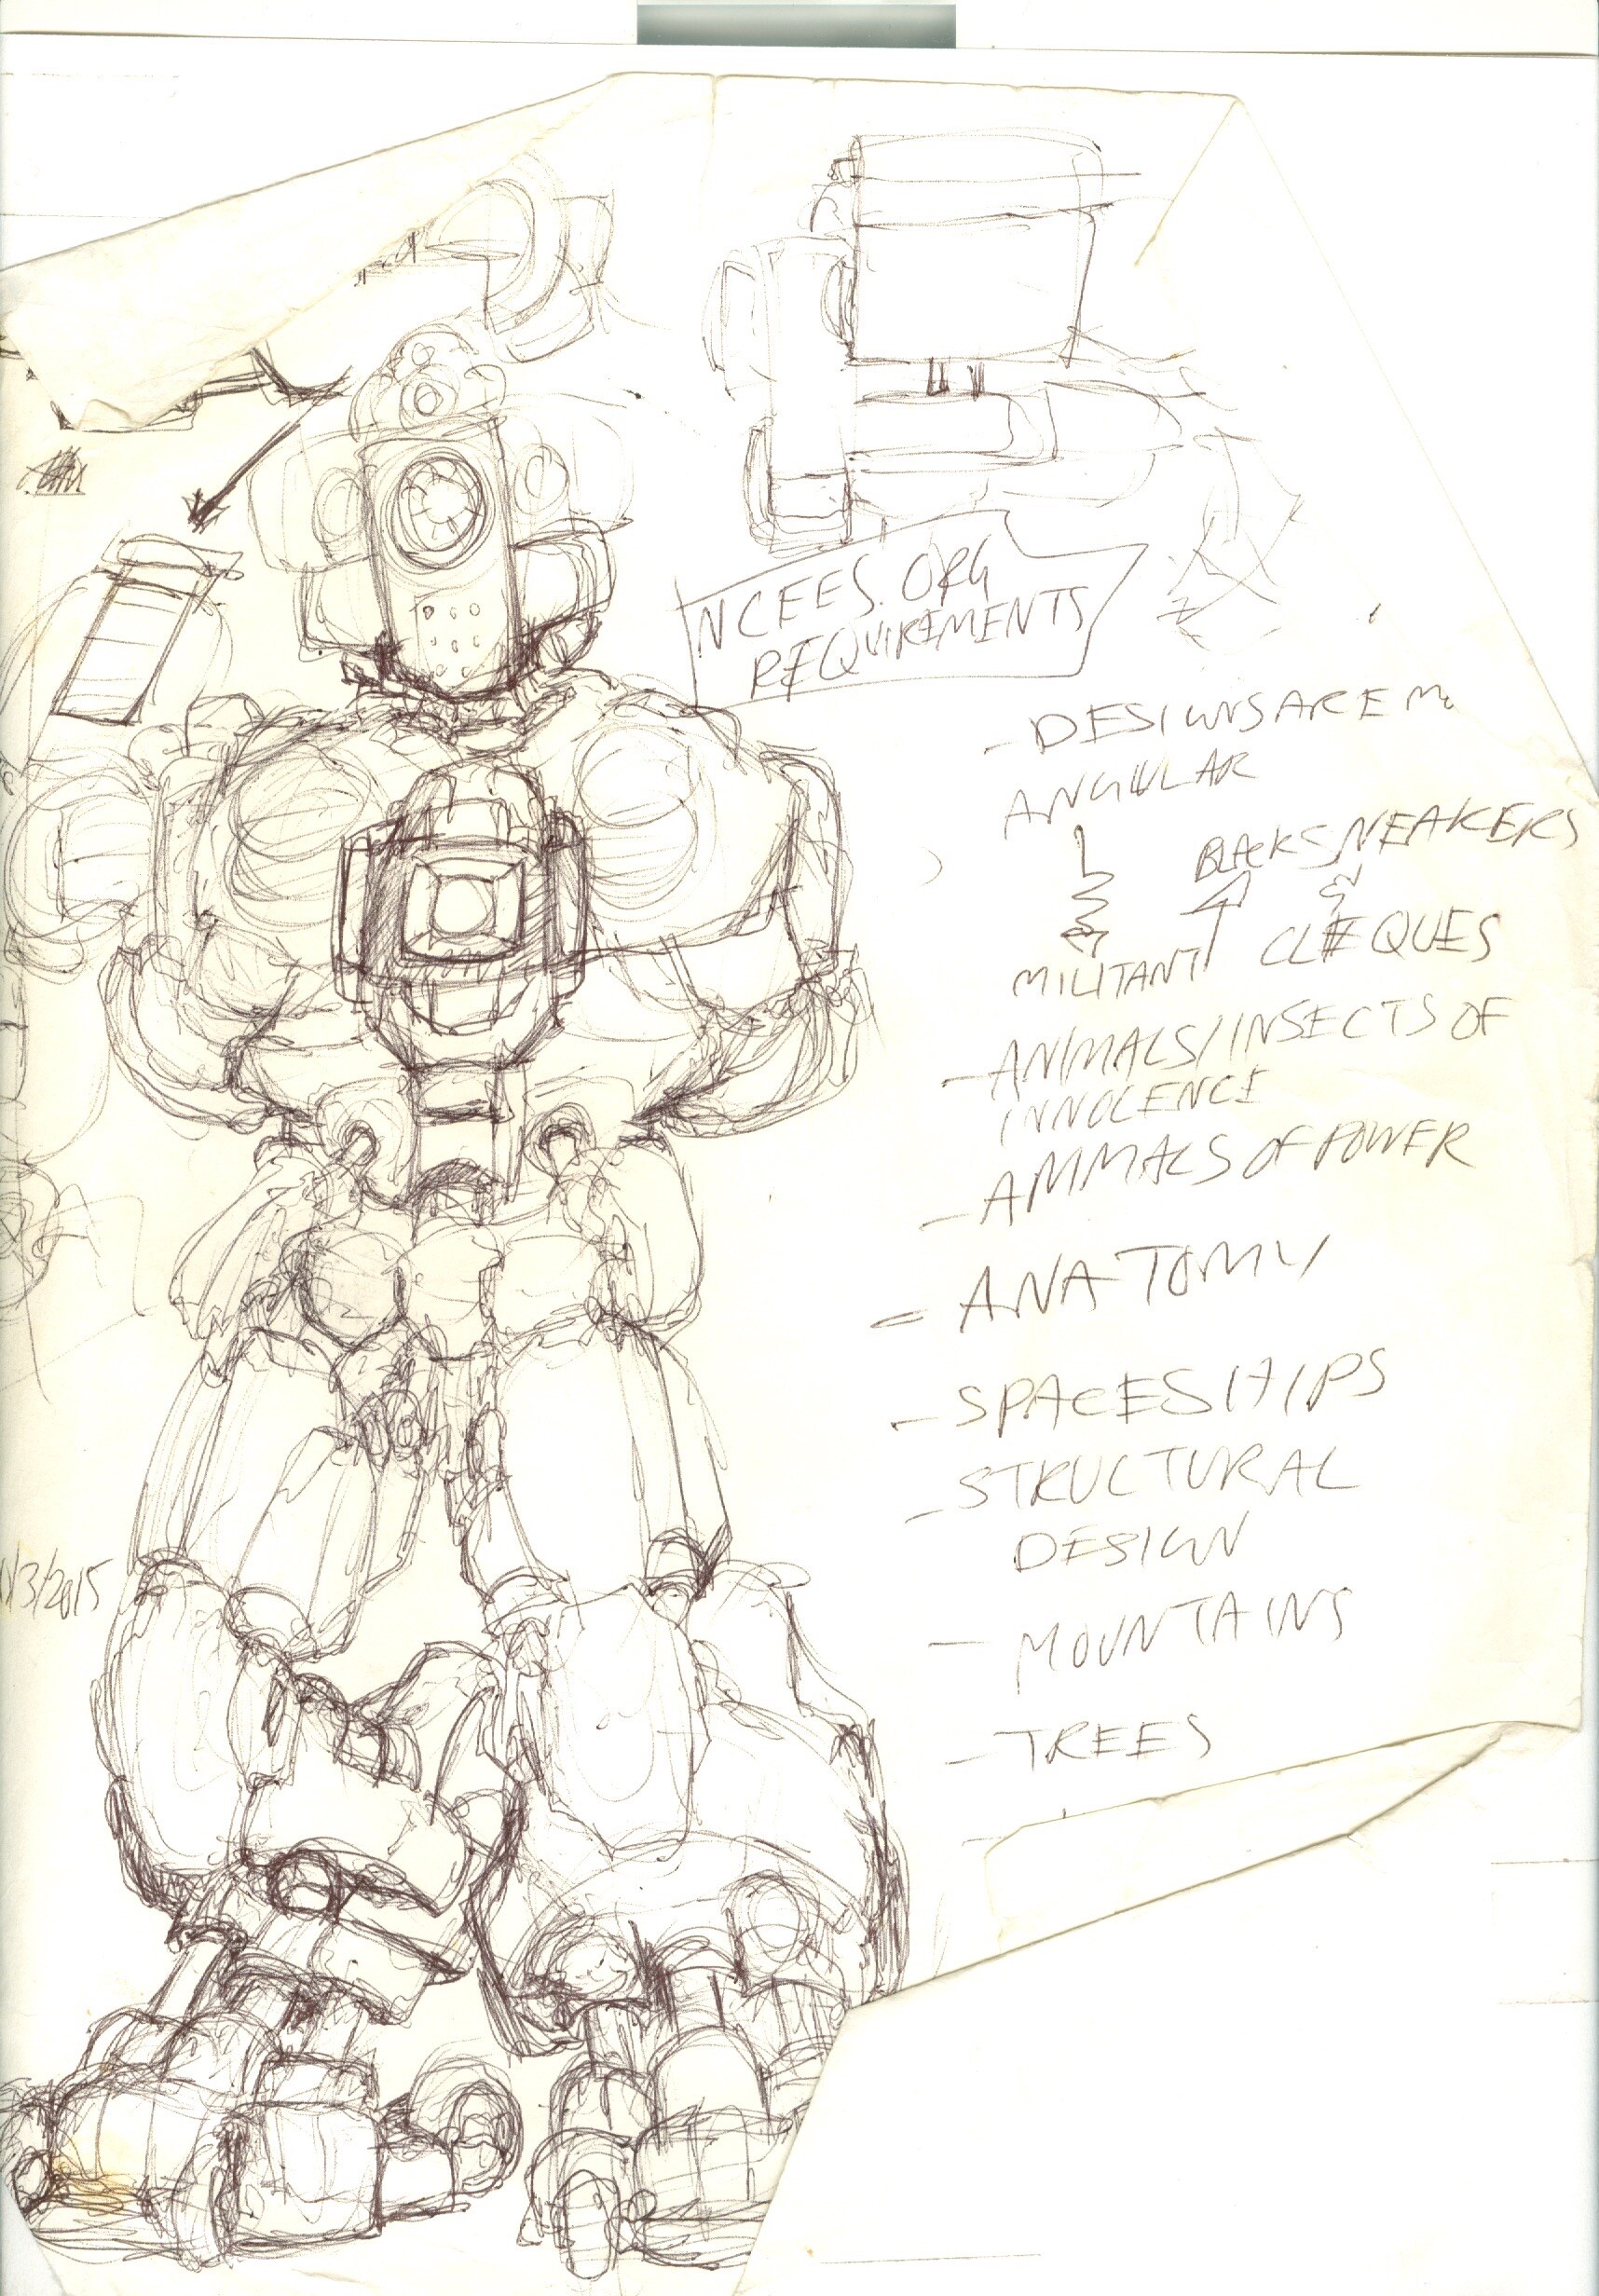 NCEES.ORG
REQUIREMENTS
- DESIGNS ARE
ANGULAR
BLACK SNEAKERS
&
MILITANT CLEQUES
- ANIMALS/INSECTS OF
INNOCENCE
- ANIMALS OF POWER
- ANATOMY
- SPACESHIPS
- STRUCTURAL
DESIGN
- MOUNTAINS
- TREES
/3/2015